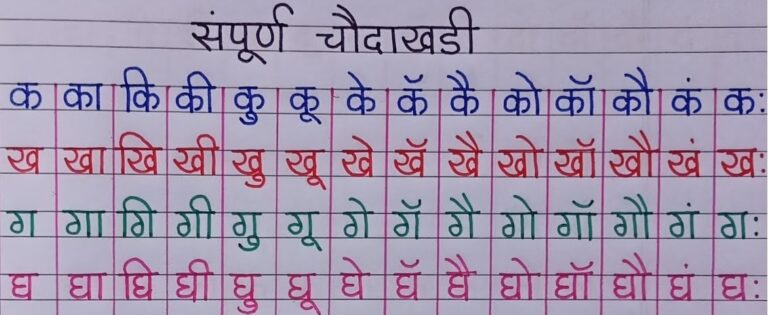 संपूर्ण चौदाखडी
क का कि की कु कू के कॅ कै को कॉ कौ कं कः
ख खा खि खी खु खू खे खॅ खै खो खॉ खौ खं खः
ग गा गि गी गु गू गे गॅ गै गो गॉ गौ गं गः
घ घा घि घी घु घू घे घॅ घै घो घॉ घौ घं घः